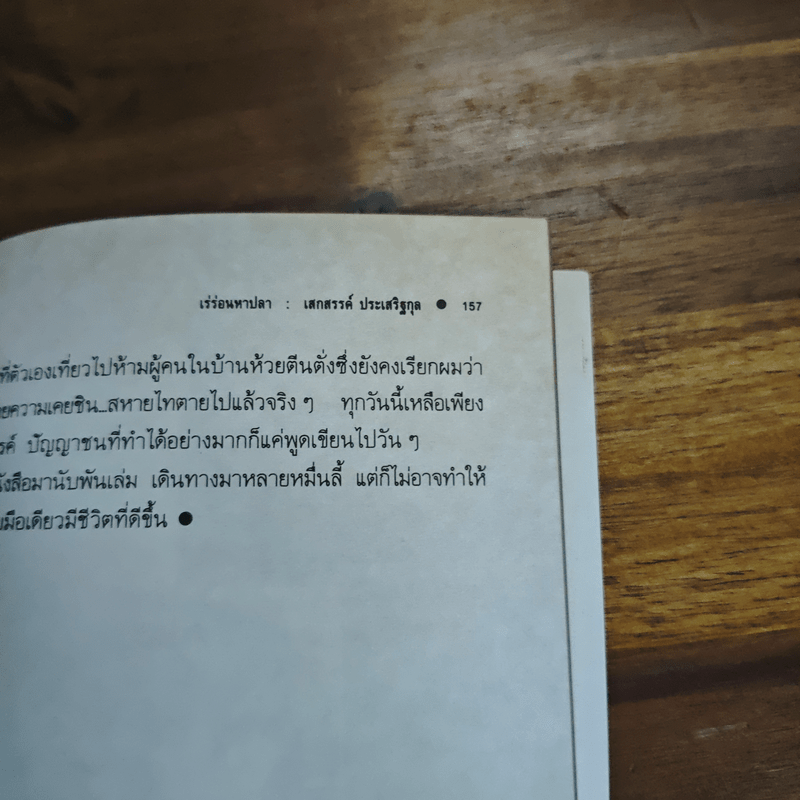 เร่ร่อนหาปลา : เสกสรรค์ ประเสริฐกุล ● 157
ที่ตัวเองเที่ยวไปห้ามผู้คนในบ้านห้วยตีนตั่งซึ่งยังคงเรียกผมว่า
ยความเคยชิน...สหายไทตายไปแล้วจริง ๆ ทุกวันนี้เหลือเพียง
รค์ ปัญญาชนที่ทำได้อย่างมากก็แค่พูดเขียนไปวัน ๆ
นังสือมานับพันเล่ม เดินทางมาหลายหมื่นลี้ แต่ก็ไม่อาจทำให้
มือเดียวมีชีวิตที่ดีขึ้น ●